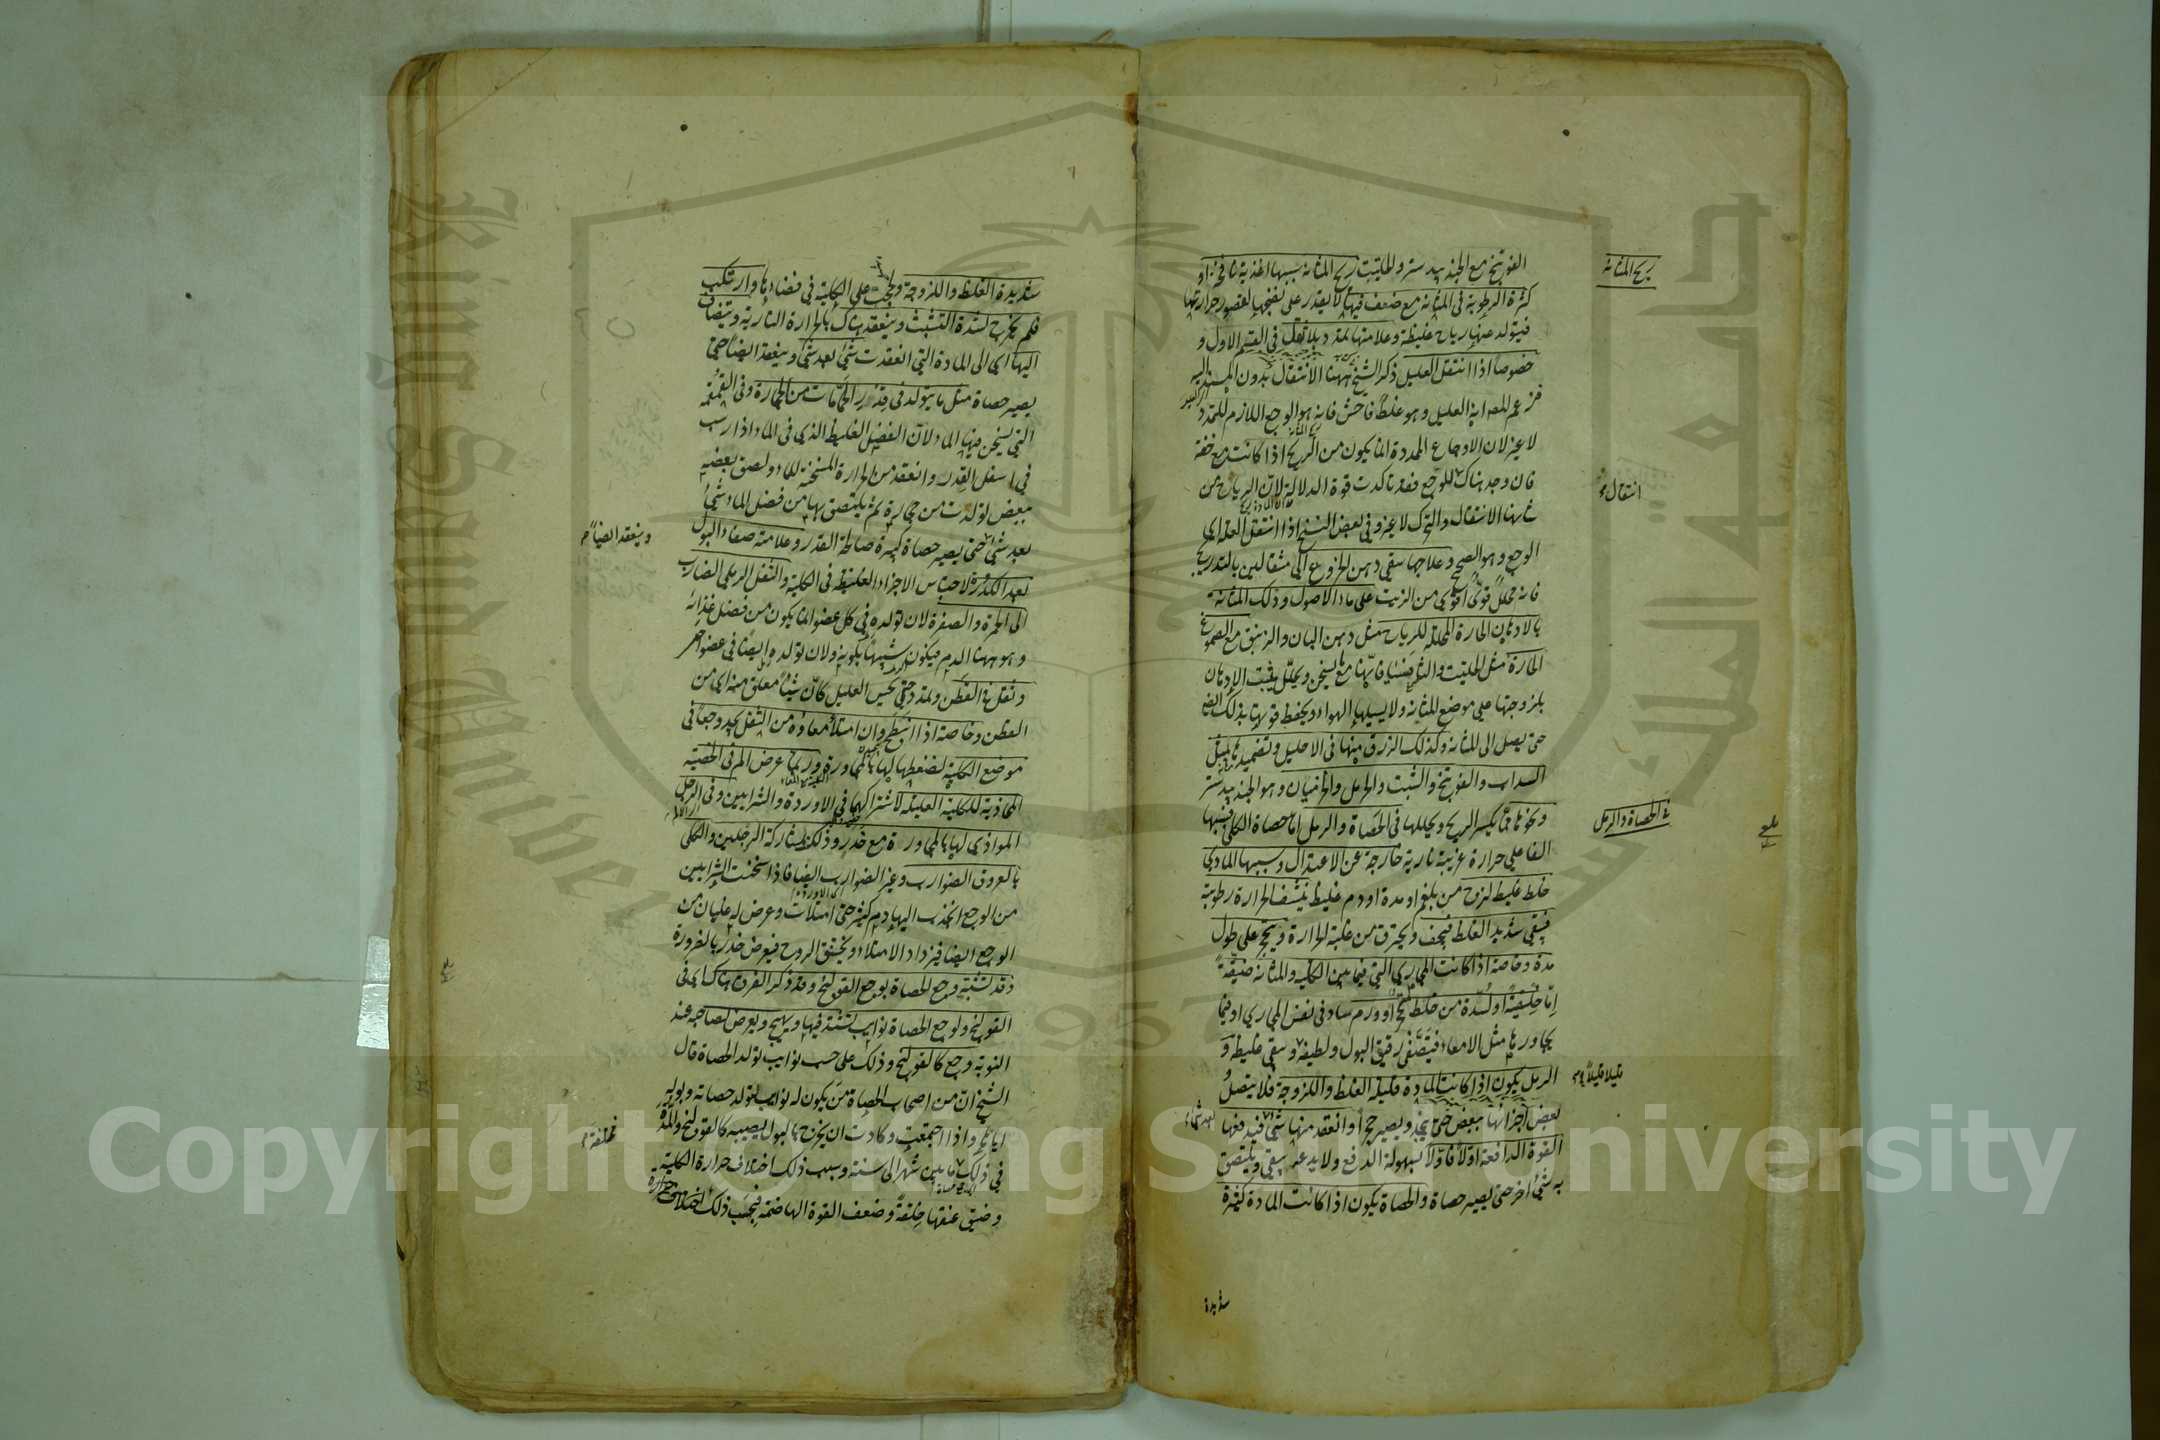 ريح المثانة
الفوتنج مع الجندبيدستر والحلتيت ريح المثانة سببها اغذية نافخة او
كثرة الرطوبة في المثانة مع ضعف فيها لا يقدر على نضجها لقصور حرارتها
فيتولد عنها رياح غليظة وعلامتها تمدد بلا ثقل في القسم الاول و
خصوصا اذا انتقل العليل ذكر الشيخ ههنا الانتقال بدون المسند اليه
فزعم المص انه العليل وهو غلط فاحش فانه هو الوجع اللازم للتمدد
لا غير لان الاوجاع الممددة انما يكون من الريح اذا كانت مع خفة
فان وجد هناك للوجع فقد تاكدت قوة الدلالة لان الرياح من
انتقال
شانها الانتقال والتحرك لا غير وفي بعض النسخ اذا انتقل العلة اى
الوجع وهو الصحيح وعلاجها سقى دهن الخروع الى مثقالين بالتدريج
فانه محلل قوى اقوى من الزيت على ماء الاصول وذلك المثانة
بالادهان الحارة المحللة للرياح مثل دهن البان والزنبق مع الصموغ
الحارة مثل الحلتيت والقنة فانها مع تسخين وتحليل يثبت الادهان
بلزوجتها على موضع المثانة ولا يسيلها الهواء ويحفظ قوتها بذلك ايضا
حتى يصل الى المثانة وكذلك الزرق منها في الاحليل وتضميدها بمثل
السداب والفوتنج والشبت والحرمل والخاميان وهو الجندبيدستر
ونحوها مما يكسر الريح ويحللها في الحصاة والرمل اما حصاة الكلى فسببها
في الحصاة والرمل
الفاعلى حرارة غريبة نارية خارجة عن الاعتدال وسببها المادى
خلط غليظ لزج من بلغم او مدة او دم غليظ ينشف الحرارة رطوبة
فيبقى شديد الغلظ فيجف ويحترق من غلبة الحرارة ويتحجر على طول
مدة وخاصة اذا كانت المجارى التي فيما بين الكلية والمثانة ضيقة
اما خليقة او لسدة من خلط لحج او ورم ساد في نفس المجارى او فيما
يجاورها مثل الامعاء فيتصفى رقيق البول ولطيفه ويبقى غليظه و
الرمل يكون اذا كانت المادة قليلة الغلظ واللزوجة فلا يتصل
قليلا قليلا
بعض اجزائها ببعض حتى يتحد ويصير حجرا وانعقد منها شيء فيدفعها
القوة الدافعة اولا فاولا لسهولة الدفع ولا يدعه يبقى ويلتصق
به شيء اخر حتى يصير حصاة والحصاة يكون اذا كانت المادة كثيرة
شديدة
شديدة الغلظ واللزوجة ولحجت على الكلية في فضائها وارتكب
فلم يخرج لشدة التشبث وينعقد هناك بالحرارة النارية وينضاف
اليها اى الى المادة التي انعقدت شيء بعد شيء وينعقد ايضا حتى
يصير حصاة مثل ما يتولد في قدر الحمامات من الحجارة وفي القمقمة
التي يسخن فيها الماء لان الفضل الغليظ الذى في الماء اذا رسب
في اسفل القدر وانعقد من الحرارة المسخنة للماء ولصق بعضه
ببعض تولدت من حجارة ثم يلتصق بها من فضل الماء شيء
وينعقد ايضا
بعد شيء حتى يصير حصاة كبيرة صالحة القدر وعلامته صفاء البول
بعد الكدرة لاحتباس الاجزاء الغليظة في الكلية والثفل الرملى الضارب
الى الحمرة والصفرة لان تولده في كل عضو انما يكون من فضل غذائه
وهو ههنا الدم فيكون شبيها بكونه ولان تولده ايضا في عضو احمر
وثقل في القطن وتمدد حتى يحس العليل كان شيئا معلق منه اى من
القطن وخاصة اذا انبطح وان امتلأ معاؤه من الثفل يجد وجعا في
موضع الكلية لضغطها لها بالمجاورة وربما عرض الم في الخصية
المحاذية للكلية العليلة لاشتراكها في الاوردة والشرايين وفي الرجل
الموازى لها بالمجاورة مع خدر وذلك لمشاركة الرجلين والكلى
بالعروق الضوارب وغير الضوارب ايضا فاذا سخنت الشرايين
من الوجع انجذب اليها دم كثير حتى امتلات وعرض له غليان من
الوجع ايضا فيزداد الامتلاء ويختنق الروح فيعرض خدر بالضرورة
وقد تشتبه وجع الحصاة بوجع القولنج وقد ذكر الفرق هناك اى في
القولنج ولوجع الحصاة نوايب تشتد فيها ويهيج ويعرض لصاحبه عند
النوبة وجع كالقولنج وذلك على حسب نوايب تولد الحصاة قال
الشيخ ان من اصحاب الحصاة من يكون له نوايب لتولد حصاته وبوله
اياها واذا اجتمعت وكادت ان يخرج بالبول يصيبه كالقولنج والمدة
مختلفة
في ذلك ما بين شهر الى سنة وسبب ذلك اختلاف حرارة الكلية
وضيق عنقها خلقة وضعف القوة الهاضمة فبحسب ذلك
Copyright © King Saud University
جامعة الملك سعود
King Saud University
1957